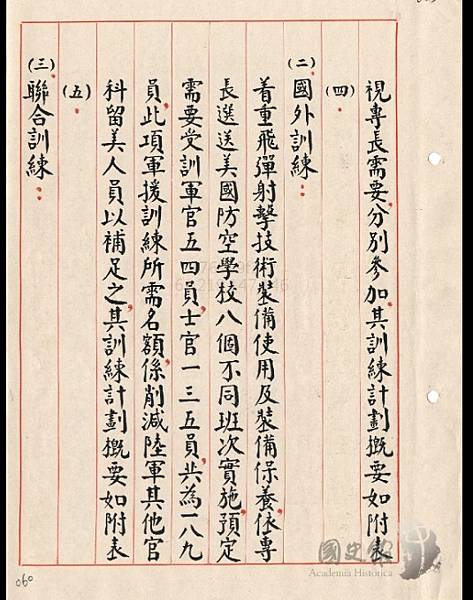 視專長需要分別參加其訓練計劃概要如附表
(四)
(二)國外訓練:
着重飛彈射擊技術裝備使用及裝備保養依專
長選送美國防空學校八個不同班次實施,預定
需要受訓軍官五四員,士官一三五員,共為一八九
員,此項軍援訓練所需名額,係削減陸軍其他官
科留美人員以補足之,其訓練計劃概要如附表
(五)
(三)聯合訓練:
060
國史館
Academia Historica